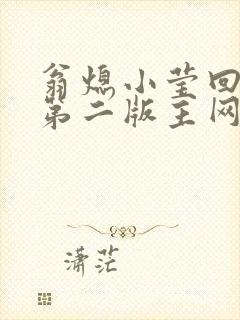 翁熄小莹回
第二版主网
潇茫